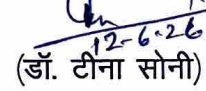 12-6-26
(डॉ. टीना सोनी)